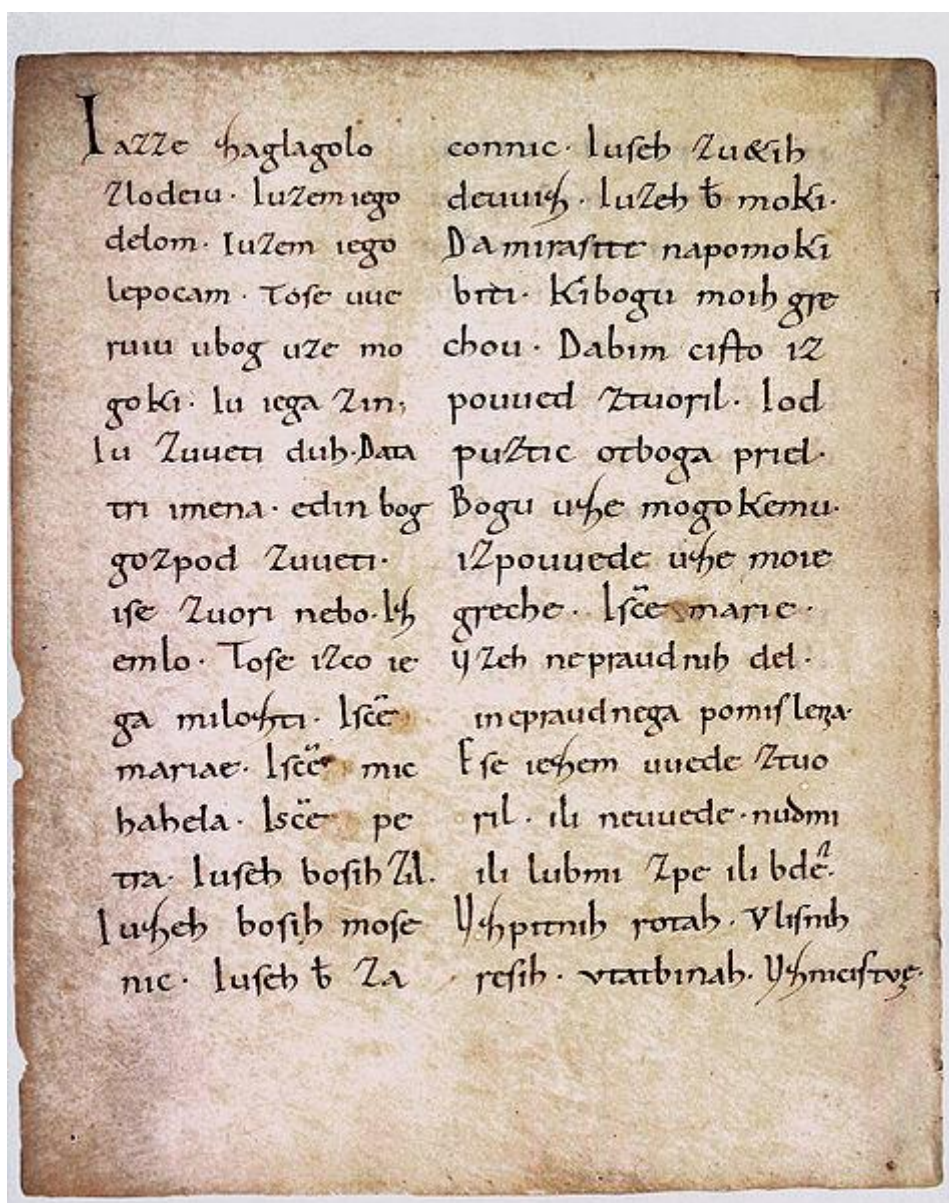 Iazze zaglagolo
zlodeiu · Iuzem iego
delom · Iuzem iego
lepocam · Tose uue
ruiu ubog uze mo
goki · Iu iega zin,
Iu zuueti duh · Data
tri imena · edin bog
gozpod zuueti ·
ise zuori nebo · Iz
emlo · Tose izco ie
ga milozti · Iscē
mariae · Iscē mic
hahela · Iscē pe
tra · Iuseh bosih zil ·
Iuzeh bosih mose
nic · Iuseh b̄ za
connic · Iuseh zu&ih
deuuiz · Iuzeh b̄ moki ·
Da mirastte napomoki
biti · Kibogu moih gre
chou · Dabim cisto iz
pouued ztuoril · Iod
puztic otboga priel ·
Bogu uze mogokemu ·
izpouuede uze moie
greche · Iscē marie ·
Uzeh nepraudnih del ·
inepraudnega pomislena ·
Ese iezem uuede ztuo
ril · ili neuuede · nudmi
ili lubmi zpe ili bdē ·
Uzpitnih rotah · Vlisnih
resih · vtatbinah · Uznicistve ·